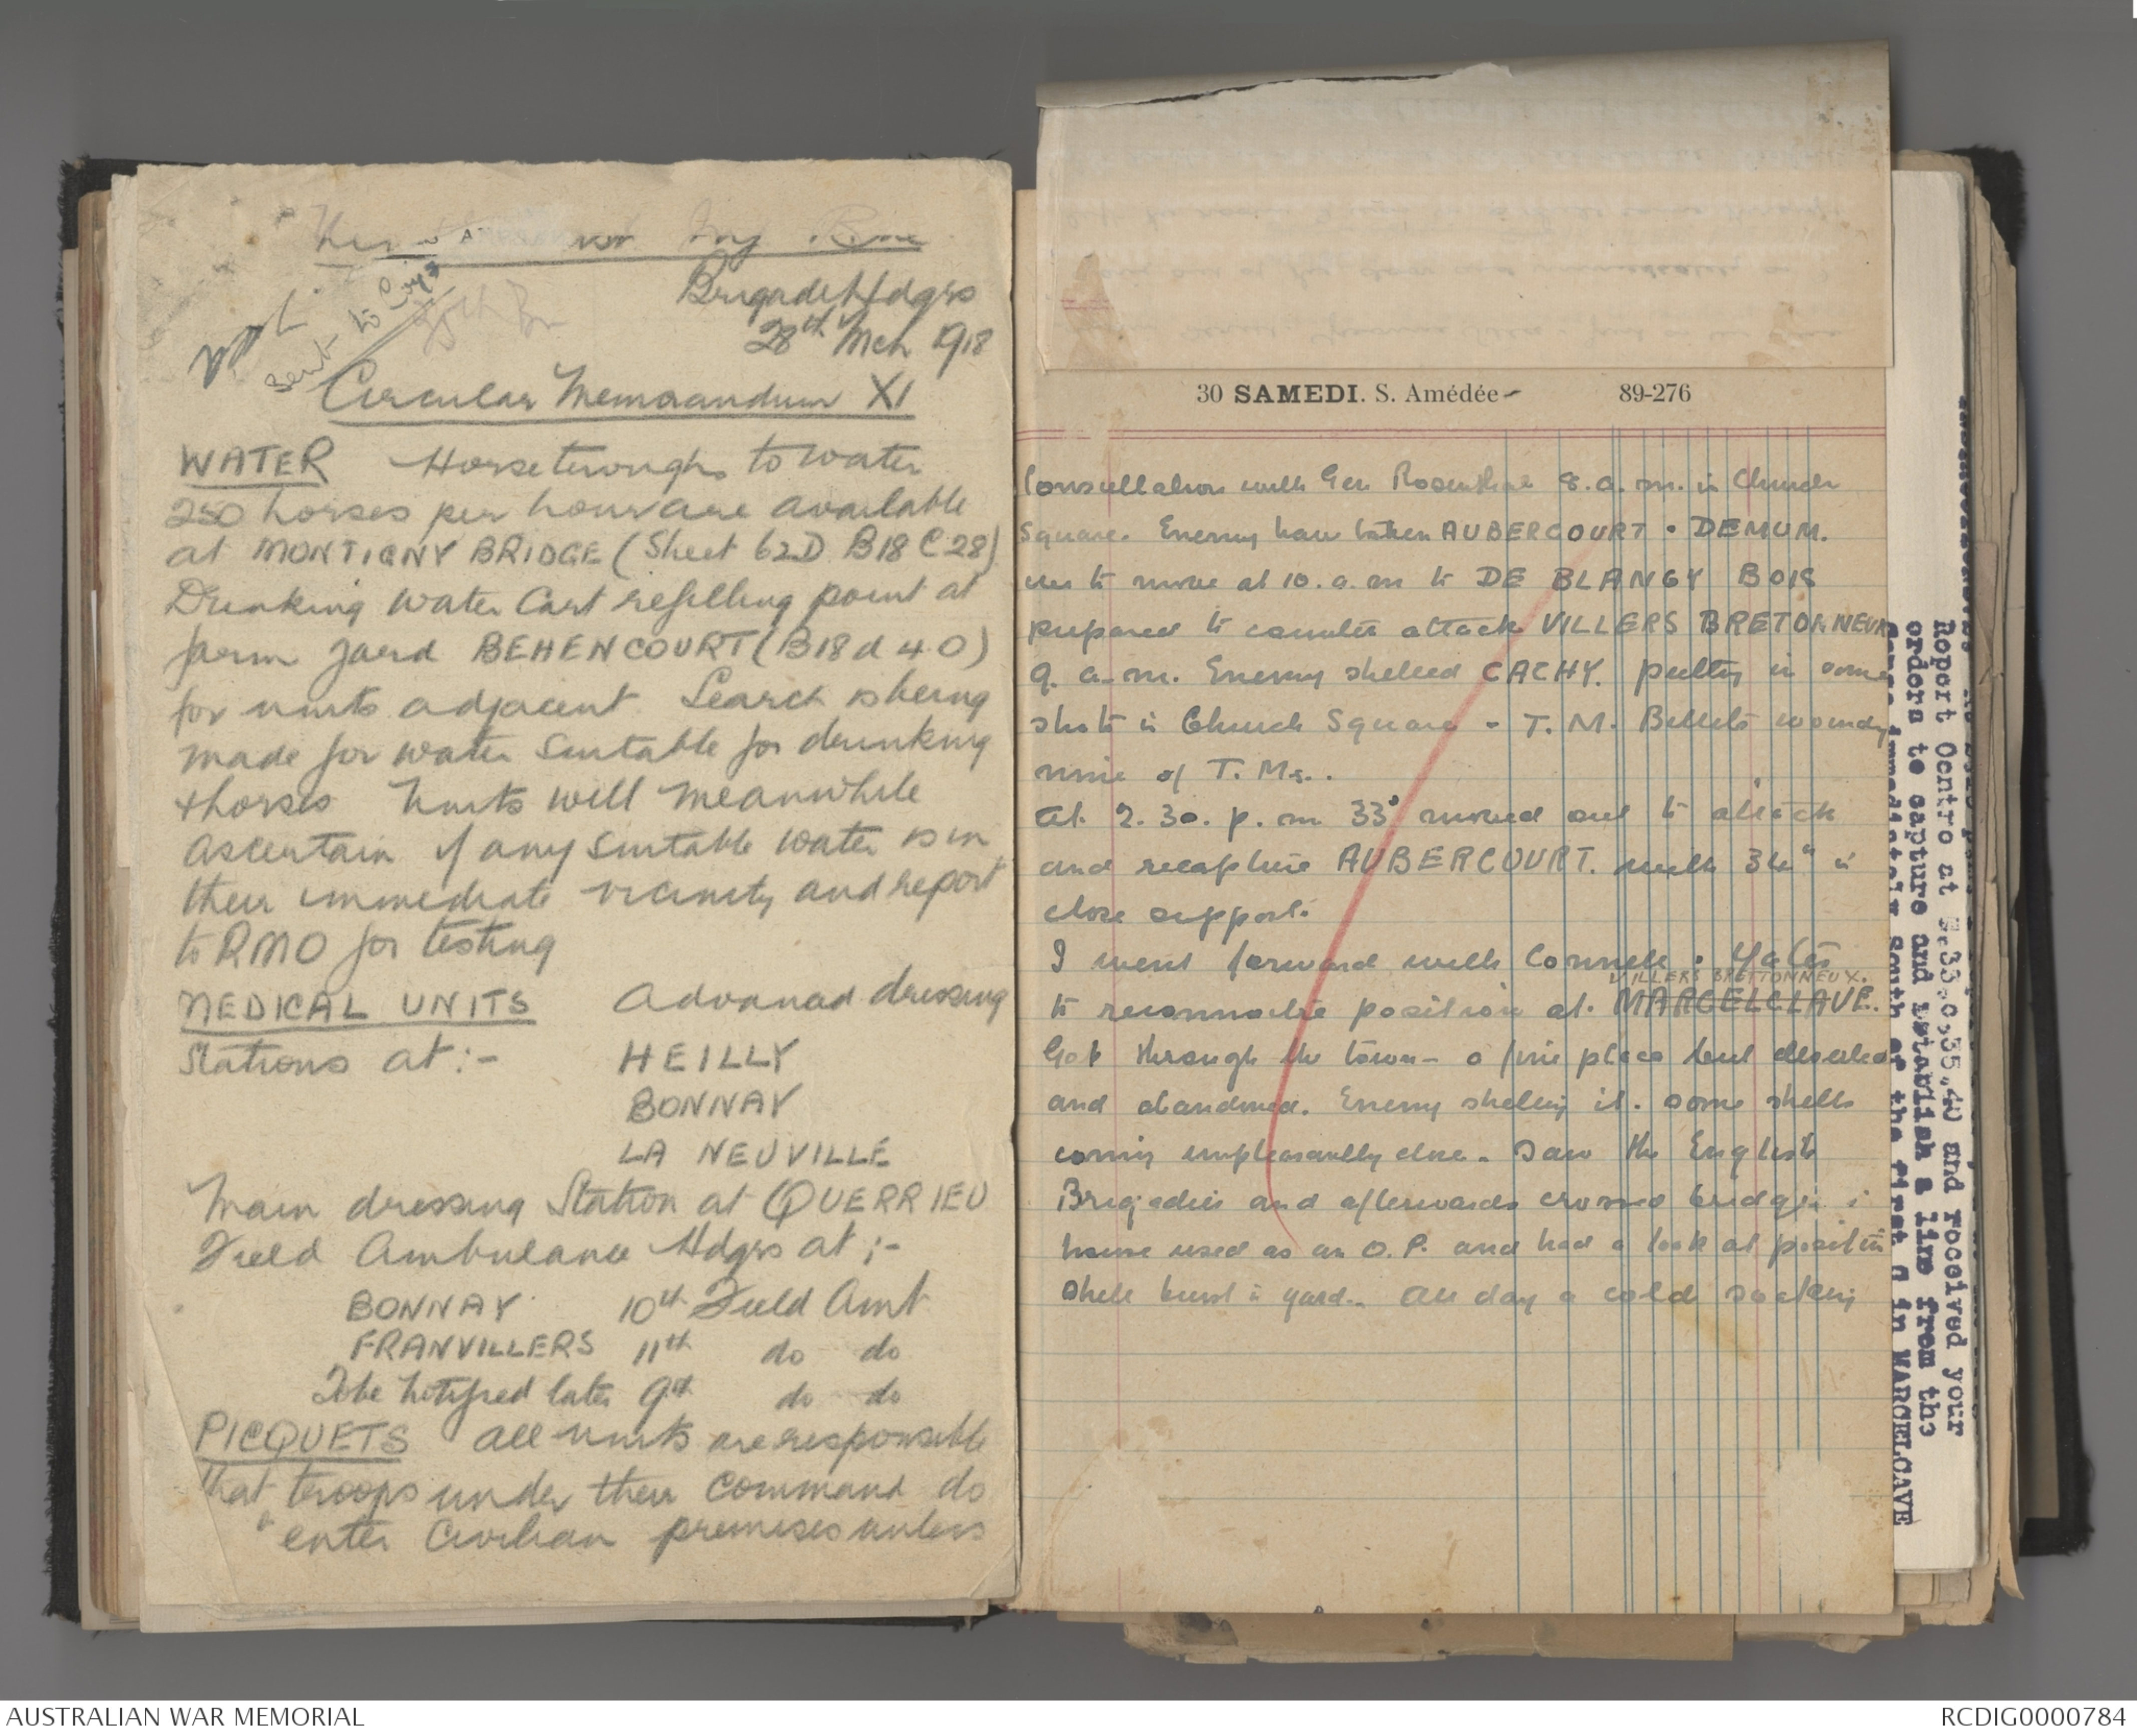 Brigade Hdqrs
28th Mch 1918
Sent to
Circular Memorandum XI
WATER Horse troughs to water
250 horses per hour are available
at MONTIGNY BRIDGE (Sheet 62D B18 C 28)
Drinking water Cart refilling point at
farm yard BEHENCOURT (B18 d 4.0)
for units adjacent. Search is being
made for water suitable for drinking
& horses Units will meanwhile
ascertain if any suitable water is in
their immediate vicinity and report
to RMO for testing
MEDICAL UNITS Advanced dressing
Stations at :-
HEILLY
BONNAY
LA NEUVILLE
Main dressing Station at QUERRIEU
Field Ambulance Hdqrs at ;-
BONNAY 10th Field Amb
FRANVILLERS 11th do do
To be notified later 9th do do
PICQUETS All units are responsible
that troops under their command do
enter Civilian premises unless
30 SAMEDI. S. Amédée 89-276
Consultation with Gen Rosenthal 8.a.m. in Church
Square. Enemy have taken AUBERCOURT. DEMUM.
We to move at 10.a.m to DE BLANGY BOIS
prepared to counter attack VILLERS BRETONNEUX
9. a.m. Enemy shelled CACHY. putting in some
shots in Church Square - T.M. Billets wounding
nine of T.Ms..
At 2.30.p.m 33 moved out to attack
and recapture AUBERCOURT. with 34th in
close support.
I went forward with Connell. Yates
VILLERS BRETTONNEUX.
to reconnoitre position at. MARCELCLAVE.
Got through the town - a fine place but deserted
and abandoned. Enemy shelling it. some shells
coming unpleasantly close. Saw the English
Brigadier and afterwards crossed bridge in
house used as an O.P. and had a look at position
Shell burst in yard.. All day a cold soaking
Report Centre at and received your
orders to capture and establish a line from the
south of the first C in MARCELCAVE
AUSTRALIAN WAR MEMORIAL
RCDIG0000784